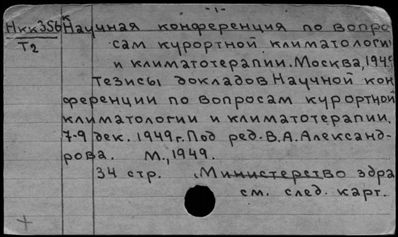 -1-
Нкк356к Научная конференция по вопро-
Т2 сам курортной климатологии
и климатотерапии. Москва, 1949
Тезисы докладов Научной кон
ференции по вопросам курортной
климатологии и климатотерапии.
7-9 дек. 1949 г. Под ред. В.А. Александ-
рова. М., 1949.
34 стр. Министерство здра
см. след. карт.